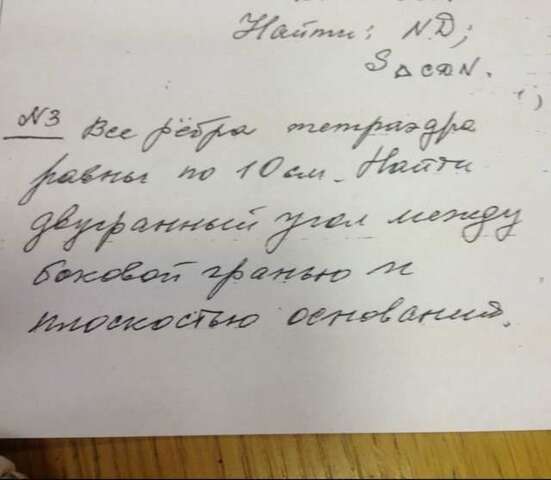 Найти: ND;
S△CDN.
N3 Все рёбра тетраэдра
равны по 10 см. Найти
двугранный угол между
боковой гранью и
плоскостью основания.